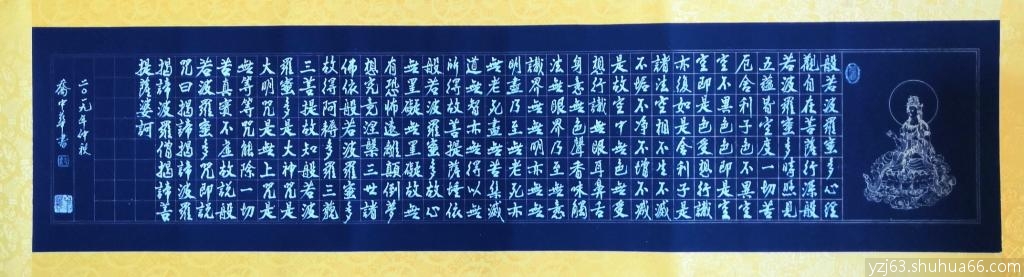 般若波羅蜜多心經
觀自在菩薩行深般
若波羅蜜多時照見
五蘊皆空度一切苦
厄舍利子色不異空
空不異色色即是空
空即是色受想行識
亦復如是舍利子是
諸法空相不生不滅
不垢不淨不增不減
是故空中無色無受
想行識無眼耳鼻舌
身意無色聲香味觸
法無眼界乃至無意
識界無無明亦無無
明盡乃至無老死亦
無老死盡無苦集滅
道無智亦無得以無
所得故菩提薩埵依
般若波羅蜜多故心
無罣礙無罣礙故無
有恐怖遠離顛倒夢
想究竟涅槃三世諸
佛依般若波羅蜜多
故得阿耨多羅三藐
三菩提故知般若波
羅蜜多是大神咒是
大明咒是無上咒是
無等等咒能除一切
苦真實不虛故說般
若波羅蜜多咒即說
咒曰揭諦揭諦波羅
揭諦波羅僧揭諦菩
提薩婆訶
二〇一九年仲秋
yzj63.shuhua66.com